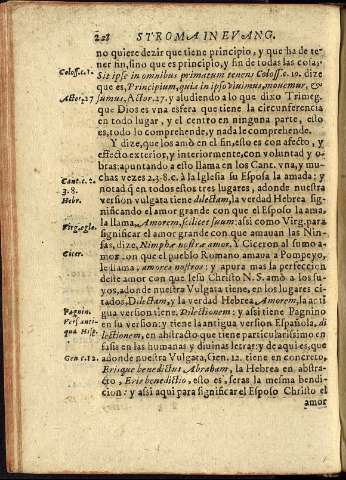 228 STROMA IN EVANG.
no quiere dezir que tiene principio, y que ha de te-
ner fin, sino que es principio, y fin de todas las cosas,
Coloss. c. 1. Sit ipse in omnibus primatum tenens Coloss. c. 19. dize
que es, Principium, quia in ipso viuimus, mouemur, &
Actor. 27 sumus, Actor. 27. y aludiendo a lo que dixo Trimeg.
que Dios es vna esfera que tiene la circunferencia
en todo lugar, y el cento en ninguna parte, esto
es, todo lo comprehende, y nada le comprehende.
Y dize, que los amò en el fin, esto es con afecto, y
effecto exterior, y interiormente, con voluntad y o-
bras: apuntando a esto llama en los Cant. vna, y mu-
Cant. c. 2. chas vezes 2.3.8.c. à la Iglesia su Esposa la amada: y
3. 8. notad q̃ en todos estos tres lugares, adonde nuestra
Hebr. version vulgata tiene dilectam, la verdad Hebrea sig-
nificando el amor grande con que el Esposo la ama,
la llama, Amorem, scilicet suum: assi como Virg. para
Virg. egle. significar el amor grande con que amauan las Nin-
fas, dize, Nimphæ nostræ amor. Y Ciceron al sumo a-
Cicer. mor con que el pueblo Romano amaua a Pompeyo,
le llama, amores nostros: y apura mas la perfeccion
deste amor con que Iesu Christo N. S. amò a los su-
yos, adonde nuestra Vulgata tiene, en los lugares ci-
tados, Dilectam, y la verdad Hebrea, Amorem, la anti
Pagnin. gua version tiene, Dilectionem: y assi tiene Pagnino
Vers. anti- en su version: y tiene la antigua version Española, di
qua Hisp. lectionem, en abstracto que tiene particularissimo en
fasis en las humanas y diuinas letras: y de aqui es, que
Gen c. 12. adonde nuestra Vulgata, Gen. 12. tiene en concreto,
Erisque benedictus Abraham, la Hebrea en abstra-
cto, Eris benedictio, esto es, seras la mesma bendi-
cion: y assi aqui para significar el Esposo Christo el
amor